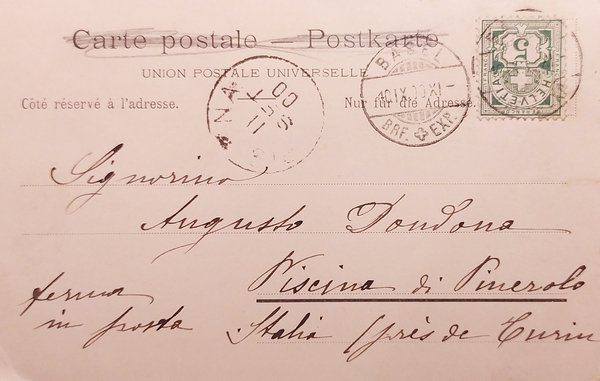 Carte postale — Postkarte
UNION POSTALE UNIVERSELLE
Côté réservé à l'adresse.
Nur für die Adresse.
BASEL
10.IX.00.XI-
BRF. EXP.
5
HELVETIA
NA
00
11
Signorino
Augusto Dondona
Piscina di Pinerolo
ferma
in posta
Italia (près de Turin